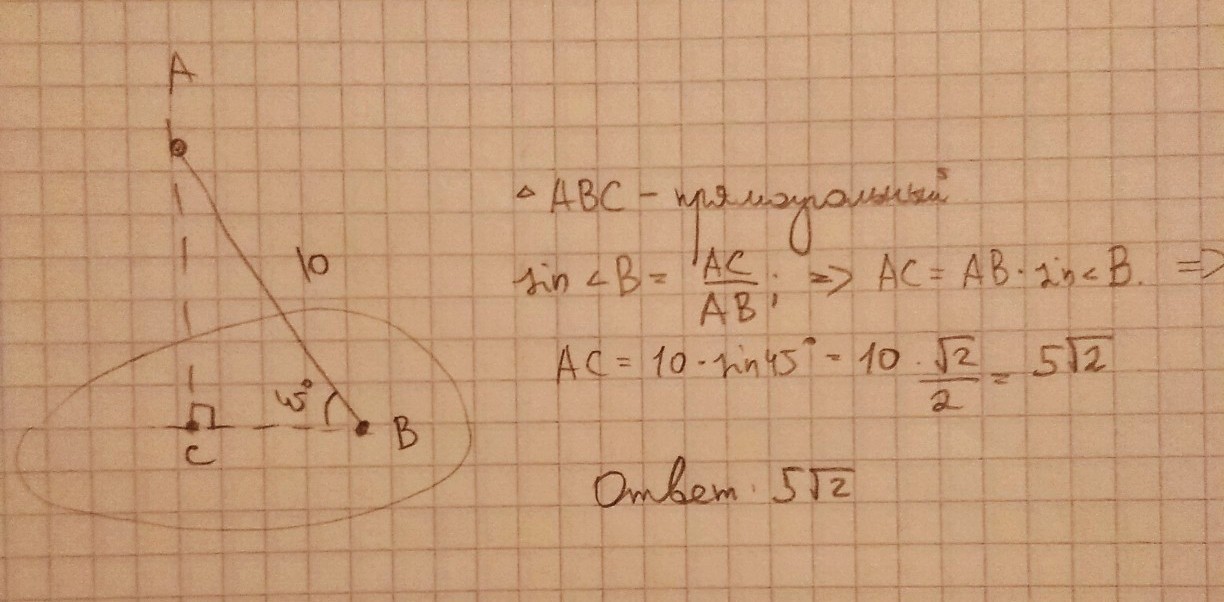 A
10
45°
C
B
△ ABC – прямоугольный
sin ∠B = AC/AB; => AC = AB · sin ∠B. =>
AC = 10 · sin 45° = 10 · √2/2 = 5√2
Ответ. 5√2